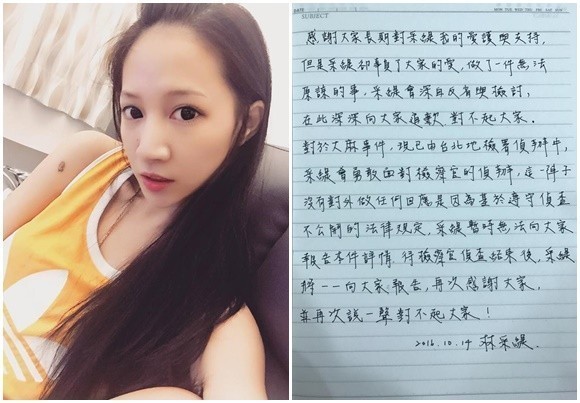 SUBJECT
MON TUE WED THU FRI SAT SUN
感謝大家長期對采緹我的愛護與支持，
但是采緹卻辜負了大家的愛，做了一件無法
原諒的事，采緹會深自反省與檢討，
在此深深向大家道歉，對不起大家。
對於大麻事件，現已由台北地檢署偵辦中，
采緹會勇敢面對檢察官的偵辦，這一陣子
沒有對外做任何回應是因為基於遵守偵查
不公開的法律規定，采緹暫時無法向大家
報告本件詳情，待檢察官偵查結束後，采緹
將一一向大家報告，再次感謝大家，
並再次說一聲對不起大家！
2016.10.14 林采緹